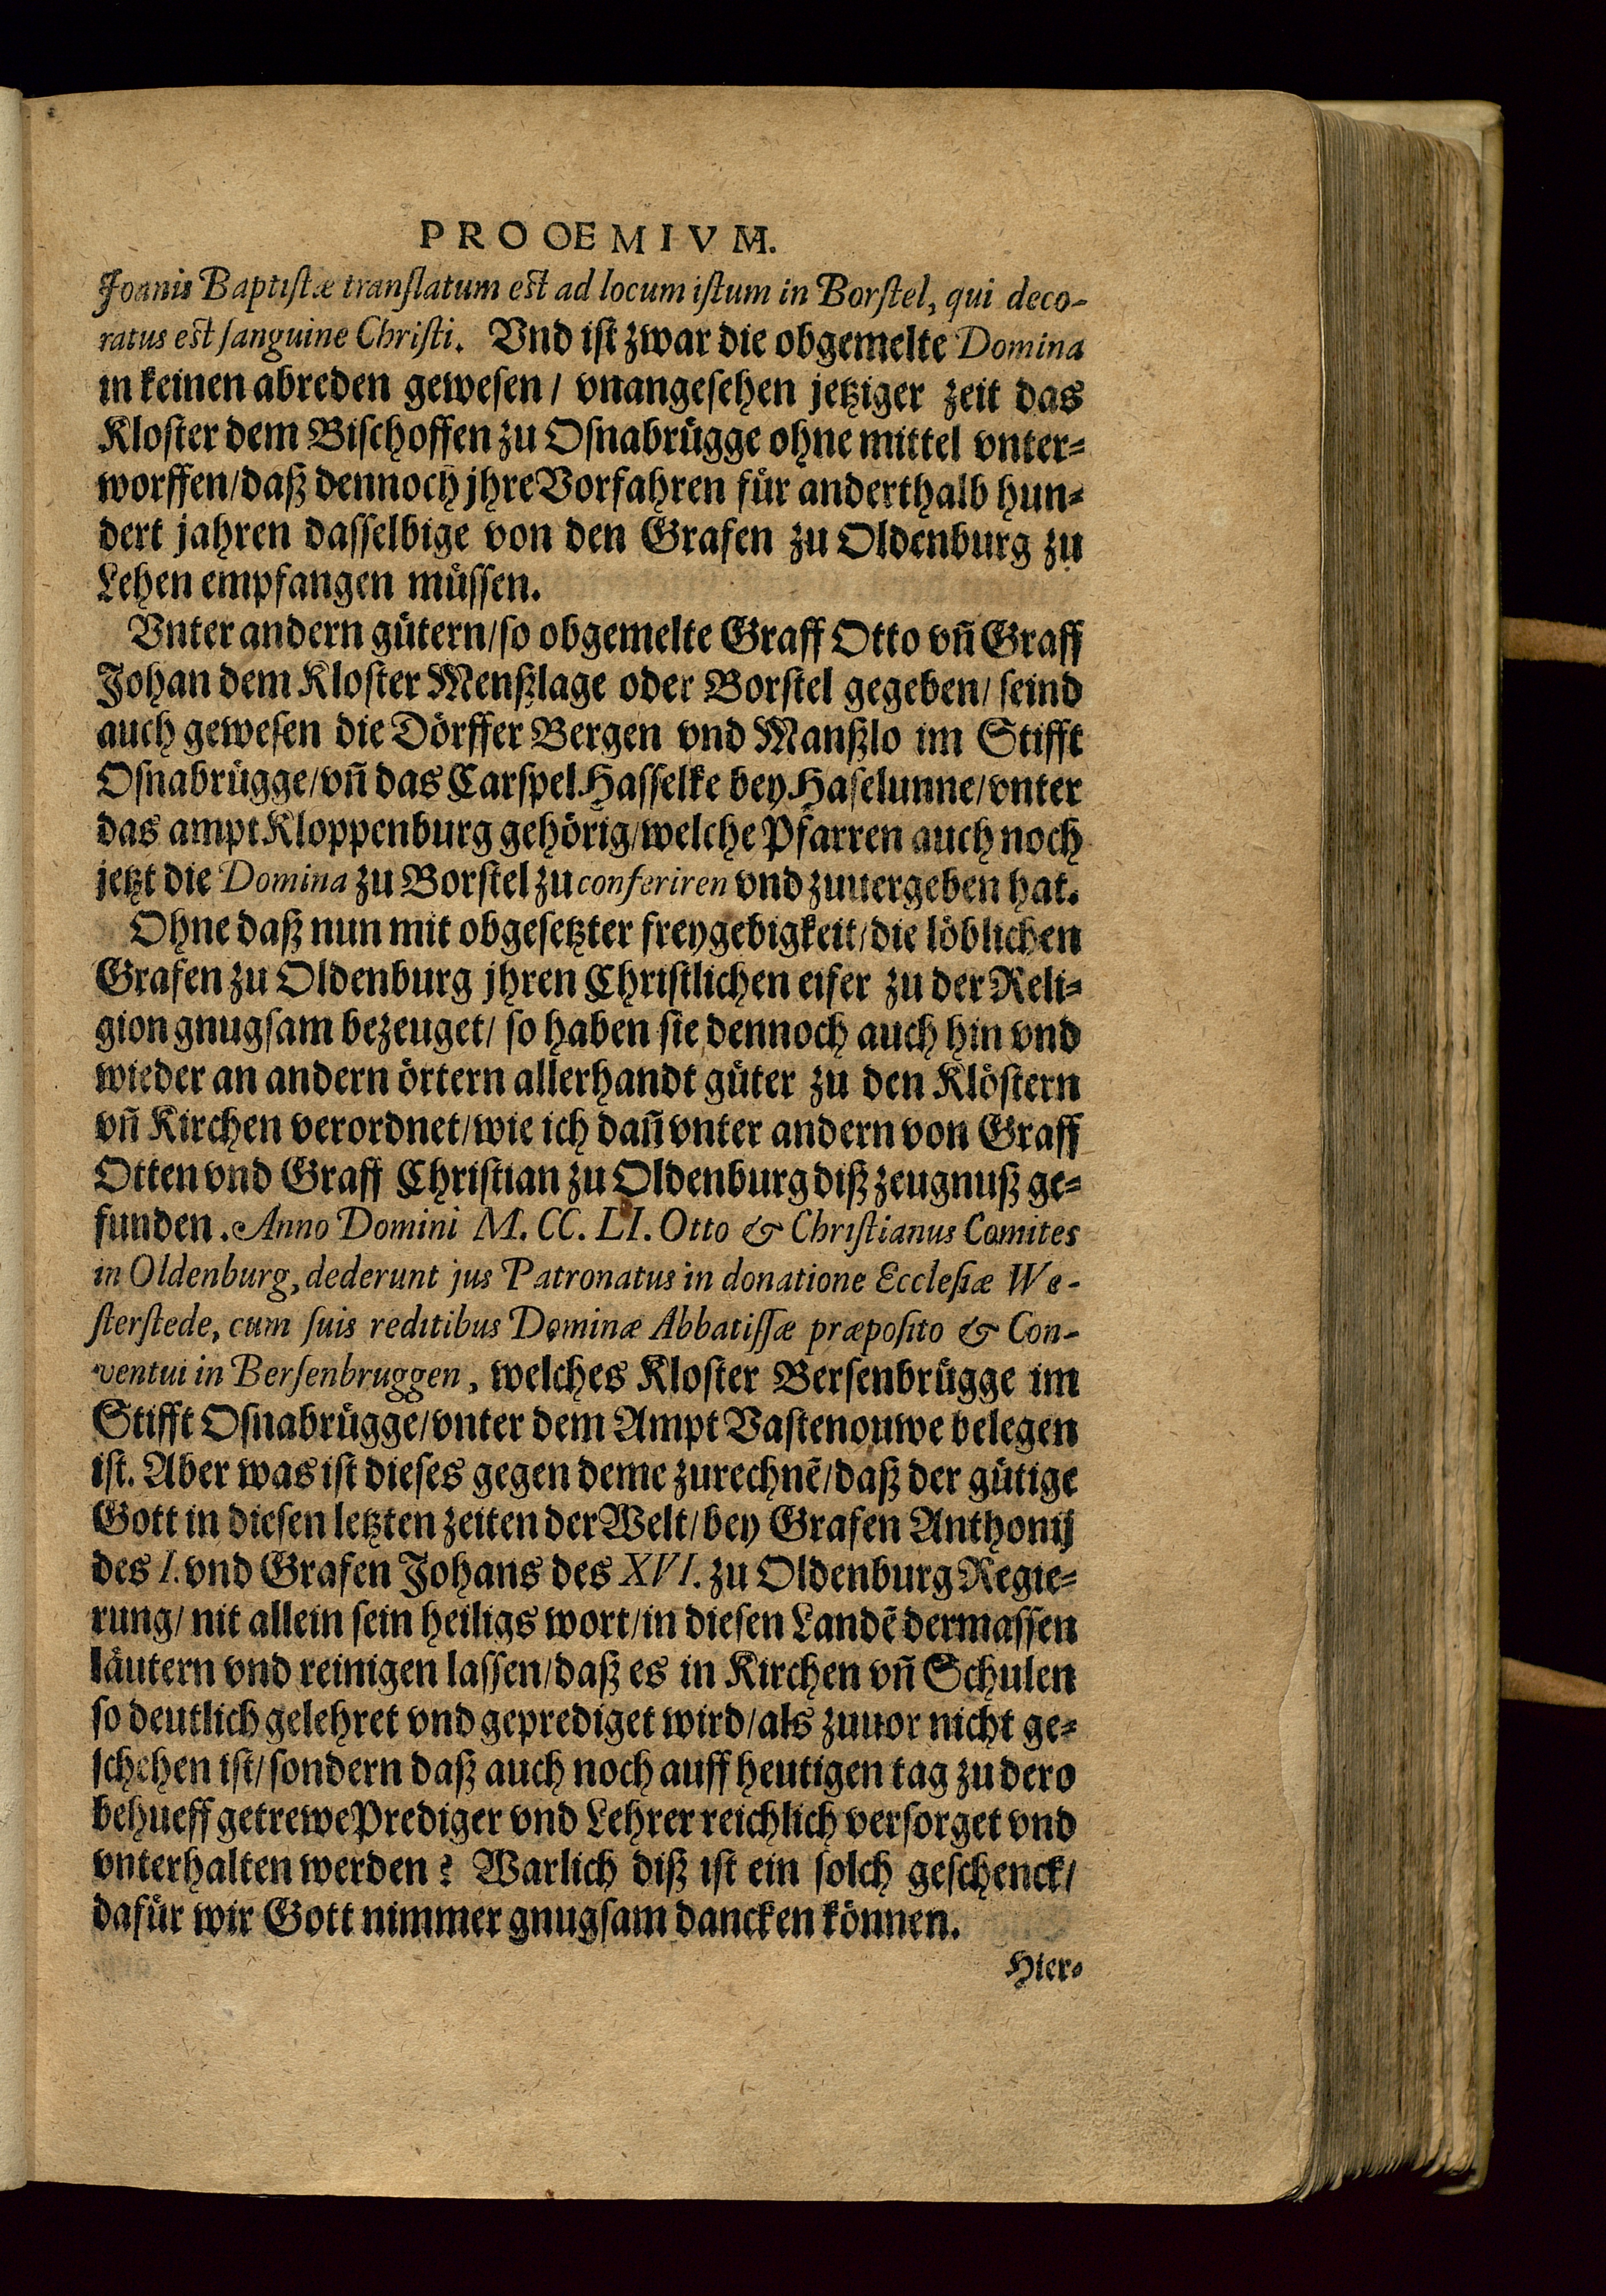 PROOEMIVM.
Joanis Baptistæ translatum est ad locum istum in Borstel, qui deco-
ratus est sanguine Christi. Vnd ist zwar die obgemelte Domina
in keinen abreden gewesen / vnangesehen jetziger zeit das
Kloster dem Bischoffen zu Osnabrügge ohne mittel vnter-
worffen/daß dennoch jhre Vorfahren für anderthalb hun-
dert jahren dasselbige von den Grafen zu Oldenburg zu
Lehen empfangen müssen.
Vnter andern gütern/so obgemelte Graff Otto vñ Graff
Johan dem Kloster Menßlage oder Borstel gegeben/ seind
auch gewesen die Dörffer Bergen vnd Manßlo im Stifft
Osnabrügge/vñ das Carspel Hasselke bey Haselunne/vnter
das ampt Kloppenburg gehörig/welche Pfarren auch noch
jetzt die Domina zu Borstel zu conferiren vnd zuuergeben hat.
Ohne daß nun mit obgesetzter freygebigkeit/die löblichen
Grafen zu Oldenburg jhren Christlichen eifer zu der Reli-
gion gnugsam bezeuget/ so haben sie dennoch auch hin vnd
wieder an andern örtern allerhandt güter zu den Klöstern
vñ Kirchen verordnet/wie ich dañ vnter andern von Graff
Otten vnd Graff Christian zu Oldenburg diß zeugnuß ge-
funden. Anno Domini M. CC. LI. Otto & Christianus Comites
in Oldenburg, dederunt jus Patronatus in donatione Ecclesiæ We-
sterstede, cum suis reditibus Dominæ Abbatissæ præposito & Con-
ventui in Bersenbruggen, welches Kloster Bersenbrügge im
Stifft Osnabrügge/vnter dem Ampt Vastenouwe belegen
ist. Aber was ist dieses gegen deme zurechnẽ/daß der gütige
Gott in diesen letzten zeiten der Welt/bey Grafen Anthonij
des I. vnd Grafen Johans des XVI. zu Oldenburg Regie-
rung/ nit allein sein heiligs wort/in diesen Landẽ dermassen
läutern vnd reinigen lassen/daß es in Kirchen vñ Schulen
so deutlich gelehret vnd geprediget wird/als zuuor nicht ge-
schehen ist/sondern daß auch noch auff heutigen tag zu dero
behueff getrewe Prediger vnd Lehrer reichlich versorget vnd
vnterhalten werden? Warlich diß ist ein solch geschenck/
dafür wir Gott nimmer gnugsam dancken können.
Hier-